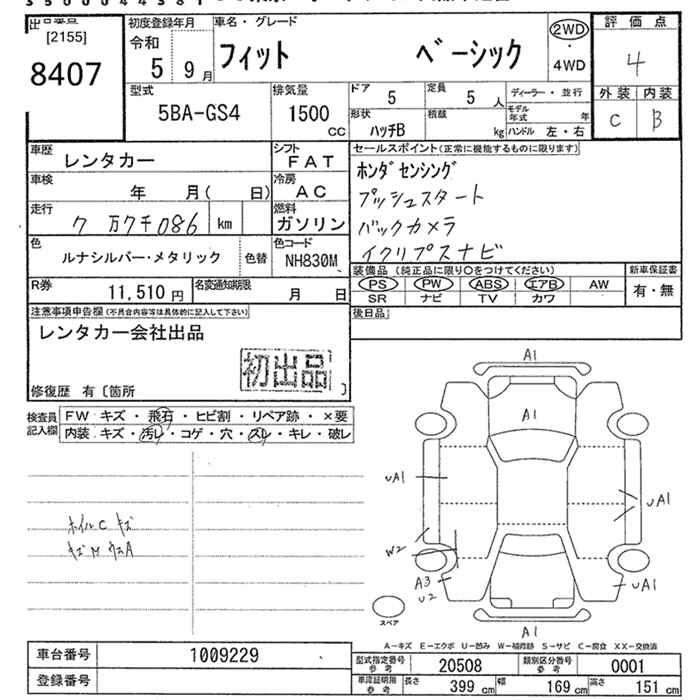 [2155]
8407
初度登録年月
令和
5 9月
車名・グレード
フィット ベーシック
2WD
・
4WD
評価点
4
外装 内装
C B
型式
5BA-GS4
排気量
1500
CC
ドア
5
定員
5 人
ディーラー・並行
形状
ハッチB
積載
kg
モデル年式 年
ハンドル 左・右
車歴
レンタカー
シフト
FAT
車検
年 月( 日)
冷房
AC
走行
7 万 7 千 086 km
燃料
ガソリン
色
ルナシルバー・メタリック
色替
色コード
NH830M
R券
11,510 円
名変通知期限
月 日
セールスポイント(正常に機能するものに限ります)
ホンダセンシング
プッシュスタート
バックカメラ
イクリプスナビ
装備品(純正品に限り○をつけてください)
PS PW ABS エアB AW
SR ナビ TV カワ
新車保証書
有・無
後日品
注意事項申告欄(不具合内容等は具体的に記入して下さい)
レンタカー会社出品
初出品
修復歴 有〔箇所 〕
検査員記入欄
FW キズ・飛石・ヒビ割・リペア跡・×要
内装 キズ・汚レ・コゲ・穴・スレ・キレ・破レ
ホイルC キズ
A1
A1
UA1
UA1
W2
A3
U2
UA1
A1
スペア
A−キズ E−エクボ U−凹み W−補修跡 S−サビ C−腐食 XX−交換済
車台番号
1009229
登録番号
型式指定番号参考
20508
類別区分番号参考
0001
車庫証明用参考
長さ 399 cm
幅 169 cm
高さ 151 cm